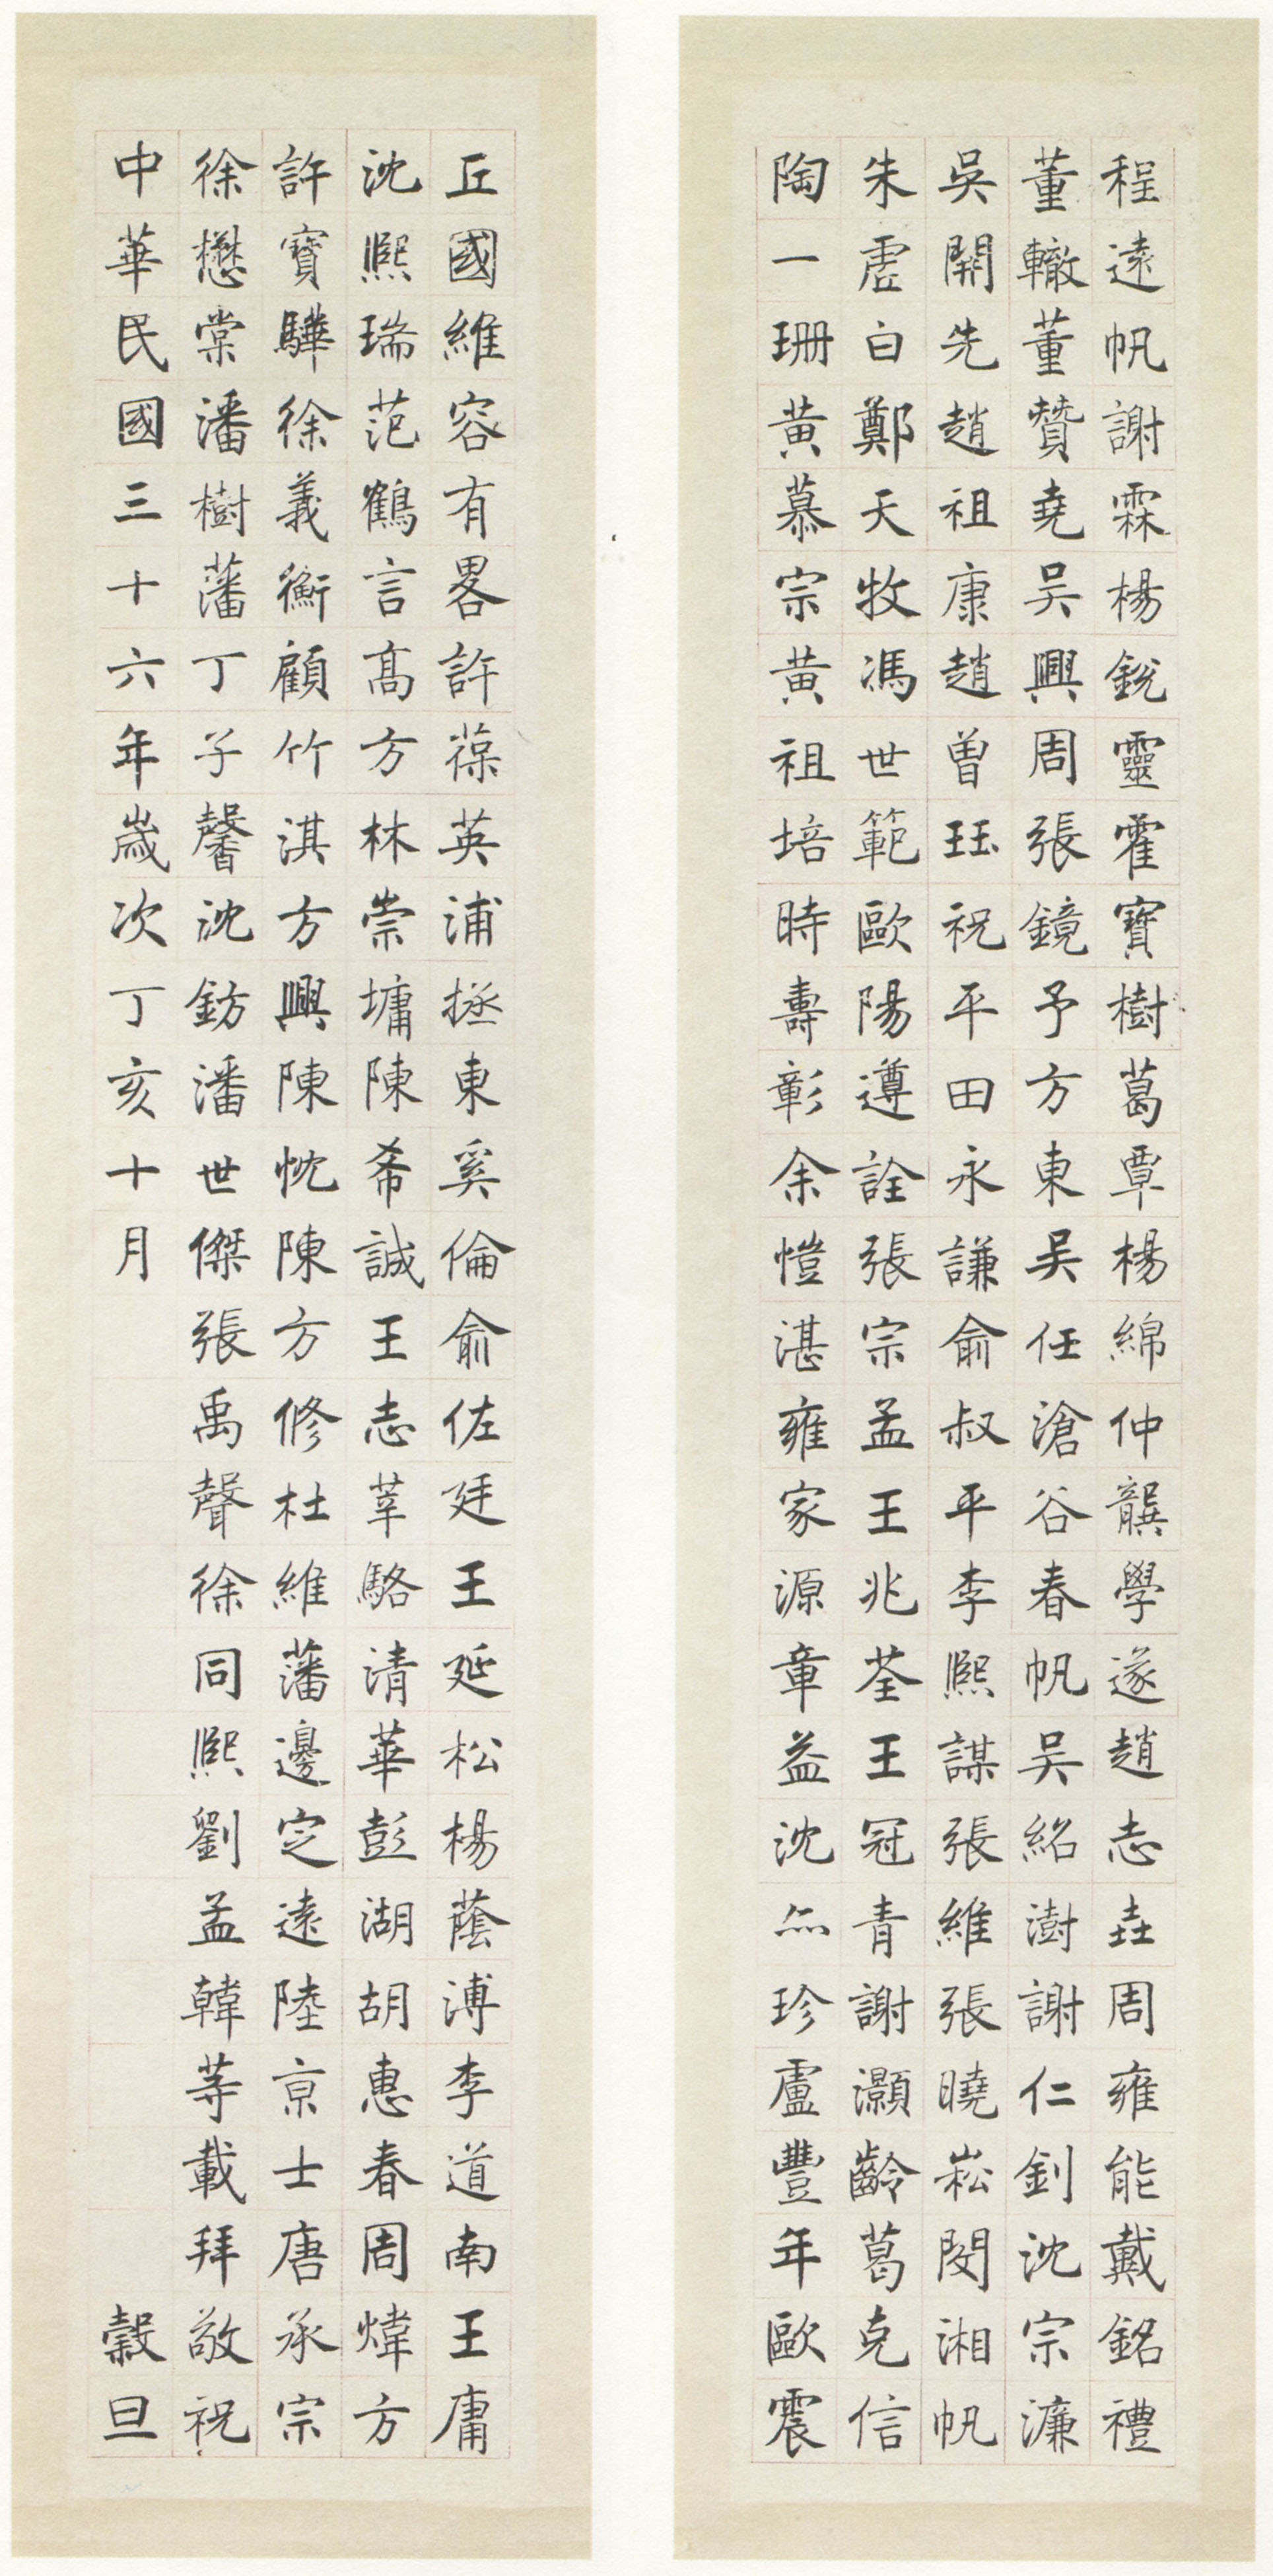 程遠帆謝霖楊銳靈霍寶樹葛覃楊綿仲龔學遂趙志垚周雍能戴銘禮
董轍董贊堯吳興周張鏡予方東吳任滄谷春帆吳紹澍謝仁釗沈宗濂
吳開先趙祖康趙曾珏祝平田永謙俞叔平李熙謀張維張曉崧閔湘帆
朱虛白鄭天牧馮世範歐陽遵詮張宗孟王兆荃王冠青謝灝齡葛克信
陶一珊黃慕宗黃祖培時壽彰余愷湛雍家源章益沈珍盧豐年歐震
丘國維容有畧許葆英浦拯東奚倫俞佐廷王延松楊蔭溥李道南王庸
沈熙瑞范鶴言高方林崇墉陳希誠王志莘駱清華彭湖胡惠春周煒方
許寶驊徐義衡顧竹淇方興陳忱陳方修杜維藩邊定遠陸京士唐承宗
徐懋棠潘樹藩丁子馨沈鈁潘世傑張禹聲徐同熙劉孟韓等載拜敬祝
中華民國三十六年歲次丁亥十月 穀旦